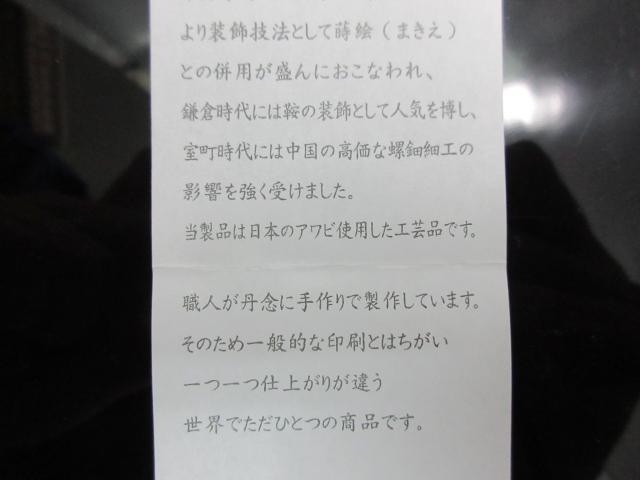 より装飾技法として蒔絵(まきえ)
との併用が盛んにおこなわれ、
鎌倉時代には鞍の装飾として人気を博し、
室町時代には中国の高価な螺鈿細工の
影響を強く受けました。
当製品は日本のアワビ使用した工芸品です。
職人が丹念に手作りで製作しています。
そのため一般的な印刷とはちがい
一つ一つ仕上がりが違う
世界でただひとつの商品です。